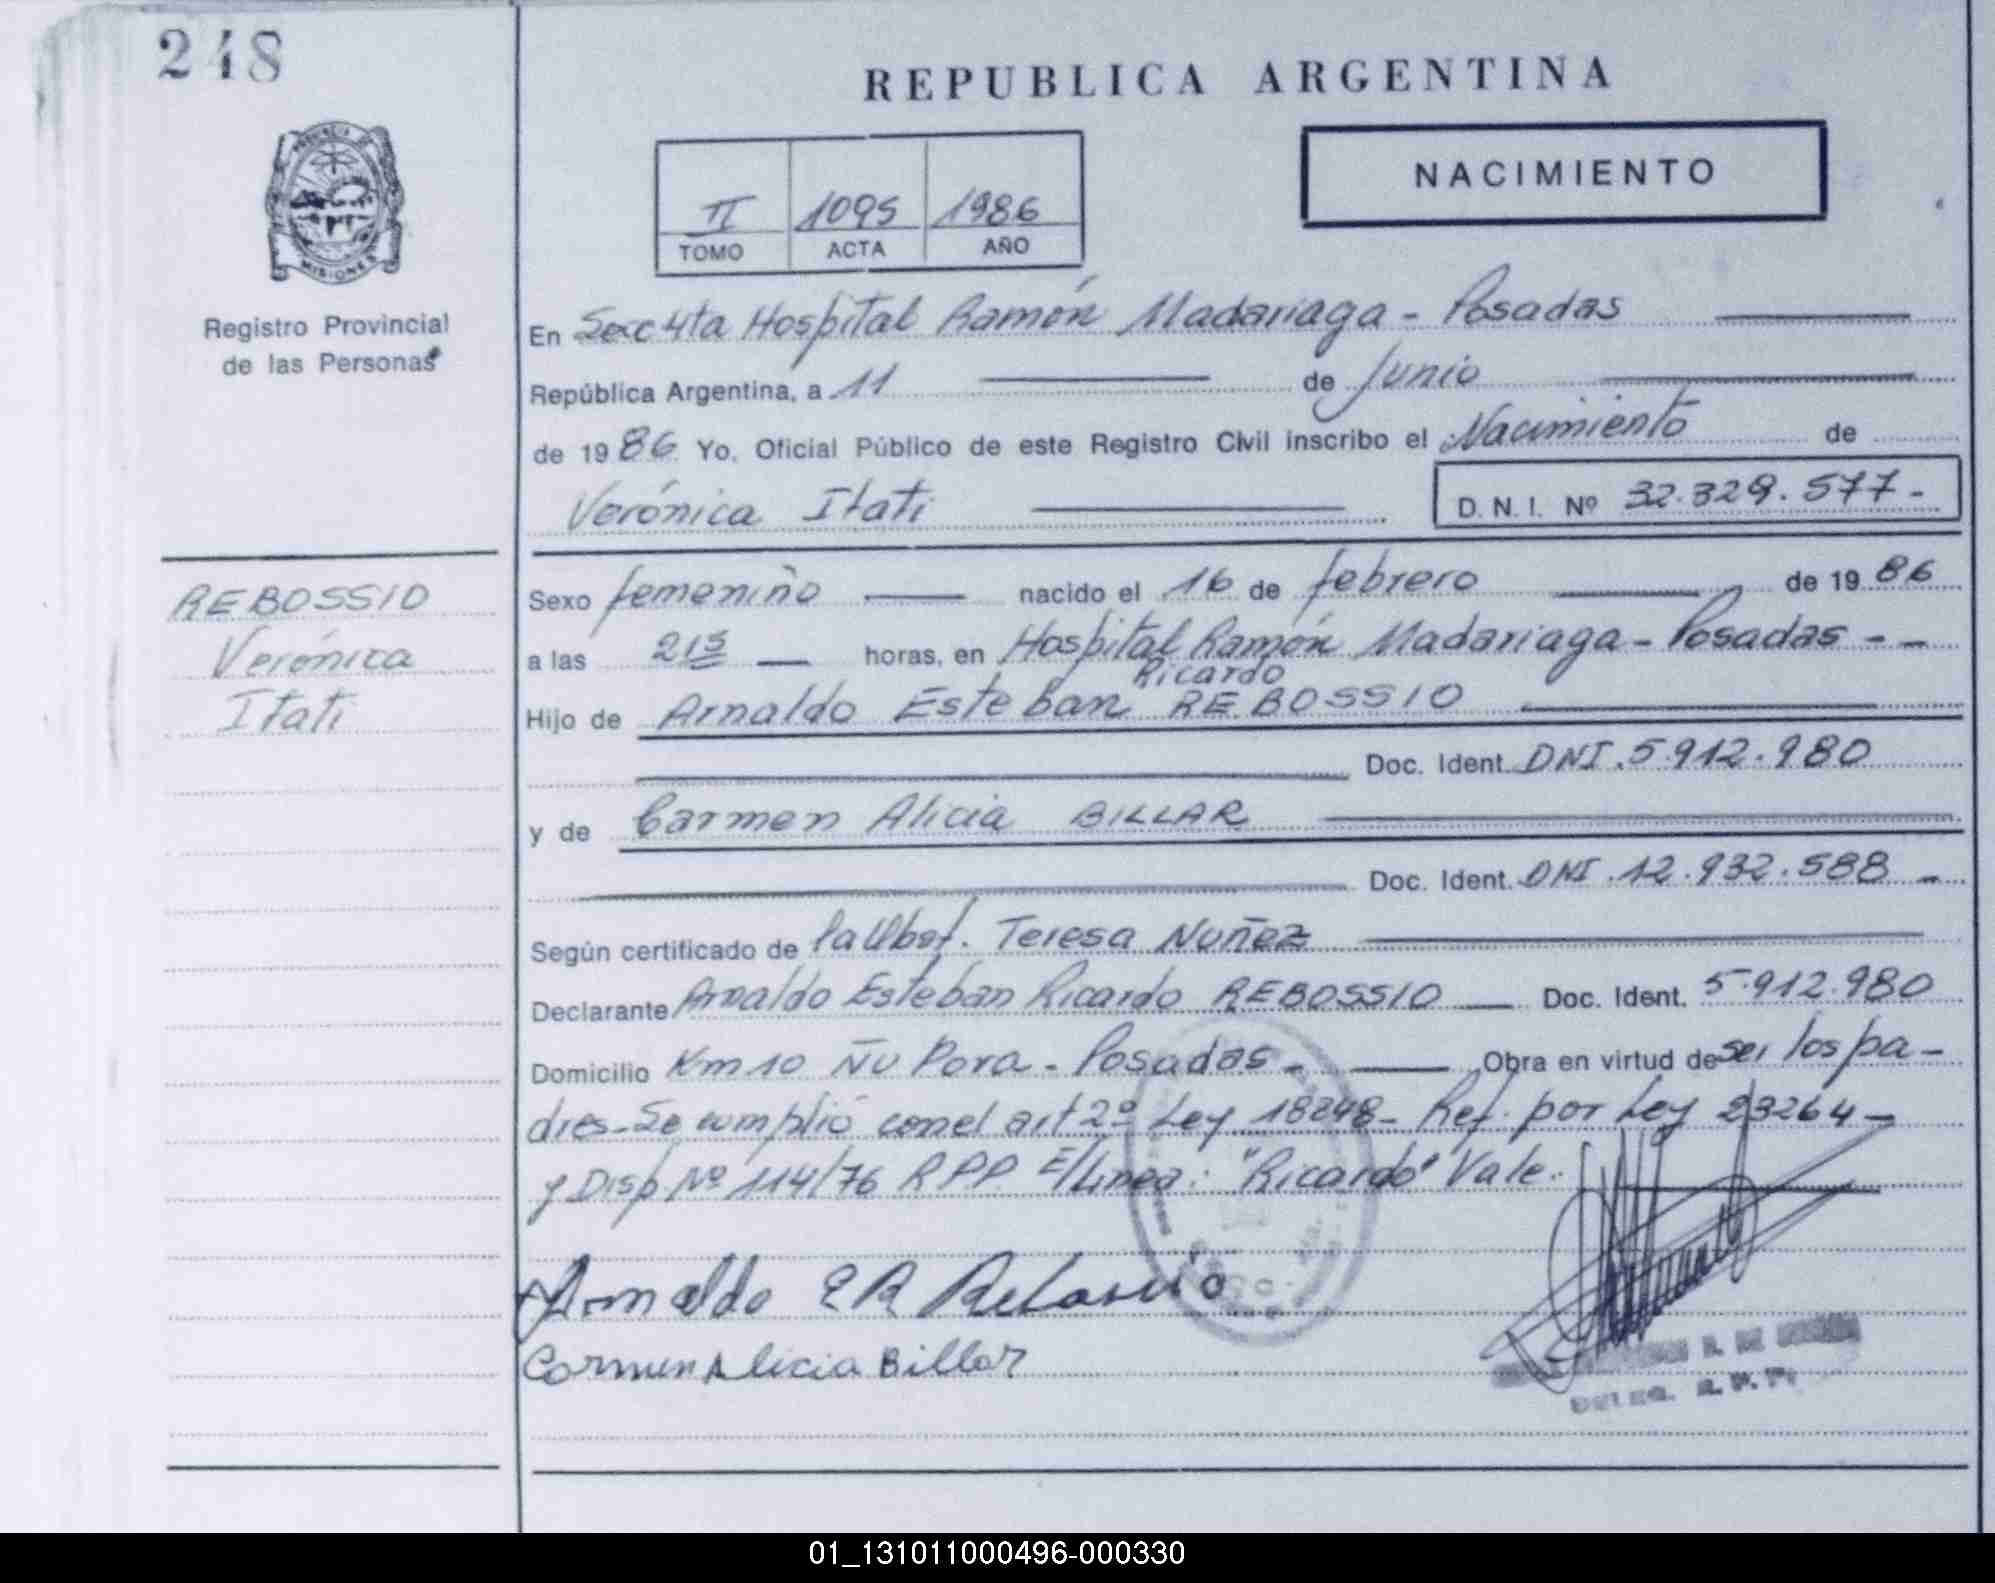 248
REPUBLICA ARGENTINA
NACIMIENTO
II 1095 1986
TOMO ACTA AÑO
PROVINCIA DE
MISIONES
Registro Provincial
de las Personas
En Secc 4ta Hospital Ramón Madariaga - Posadas
República Argentina, a 11 de Junio
de 1986 Yo, Oficial Público de este Registro Civil inscribo el Nacimiento de
Verónica Itati D. N. I. Nº 32.329.577.-
REBOSSIO
Verónica
Itati
Sexo femenino nacido el 16 de febrero de 1986
a las 21 horas, en Hospital Ramón Madariaga - Posadas - -
Ricardo
Hijo de Arnaldo Esteban REBOSSIO
Doc. Ident. DNI. 5.912.980
y de Carmen Alicia BILLAR
Doc. Ident. DNI. 12.932.588 -
Según certificado de Teresa Nuñez
Declarante Arnaldo Esteban Ricardo REBOSSIO Doc. Ident. 5.912.980
Domicilio Km 10 Ñu Pora - Posadas - Obra en virtud de ser los pa-
dres - Se cumplió con el art 2º Ley 18248 - Ref. por Ley 23264 -
y Disp Nº 114/76 RPP. E/Linea: "Ricardo" Vale.
Arnaldo E R Rebossio
Carmen Alicia Billar
01_131011000496-000330